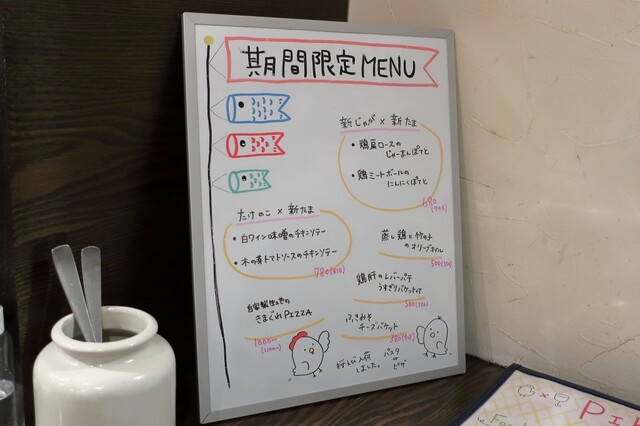 期間限定MENU
新じゃが × 新たま
・鶏肩ロースの
じゃーまんぽてと
・鶏ミートボールの
にんにくぽてと
680
たけのこ × 新たま
・白ワイン味噌のチキンソテー
・木の芽トマトソースのチキンソテー
780
蒸し鶏と竹の子
のオリーブオイル
500
鶏肝のレバーパテ
うすぎりバケット付
500
自家製生地の
きまぐれPIZZA
1000
ふきみそ
チーズバケット
380
入荷
しました。
パスタ
or
ピザ